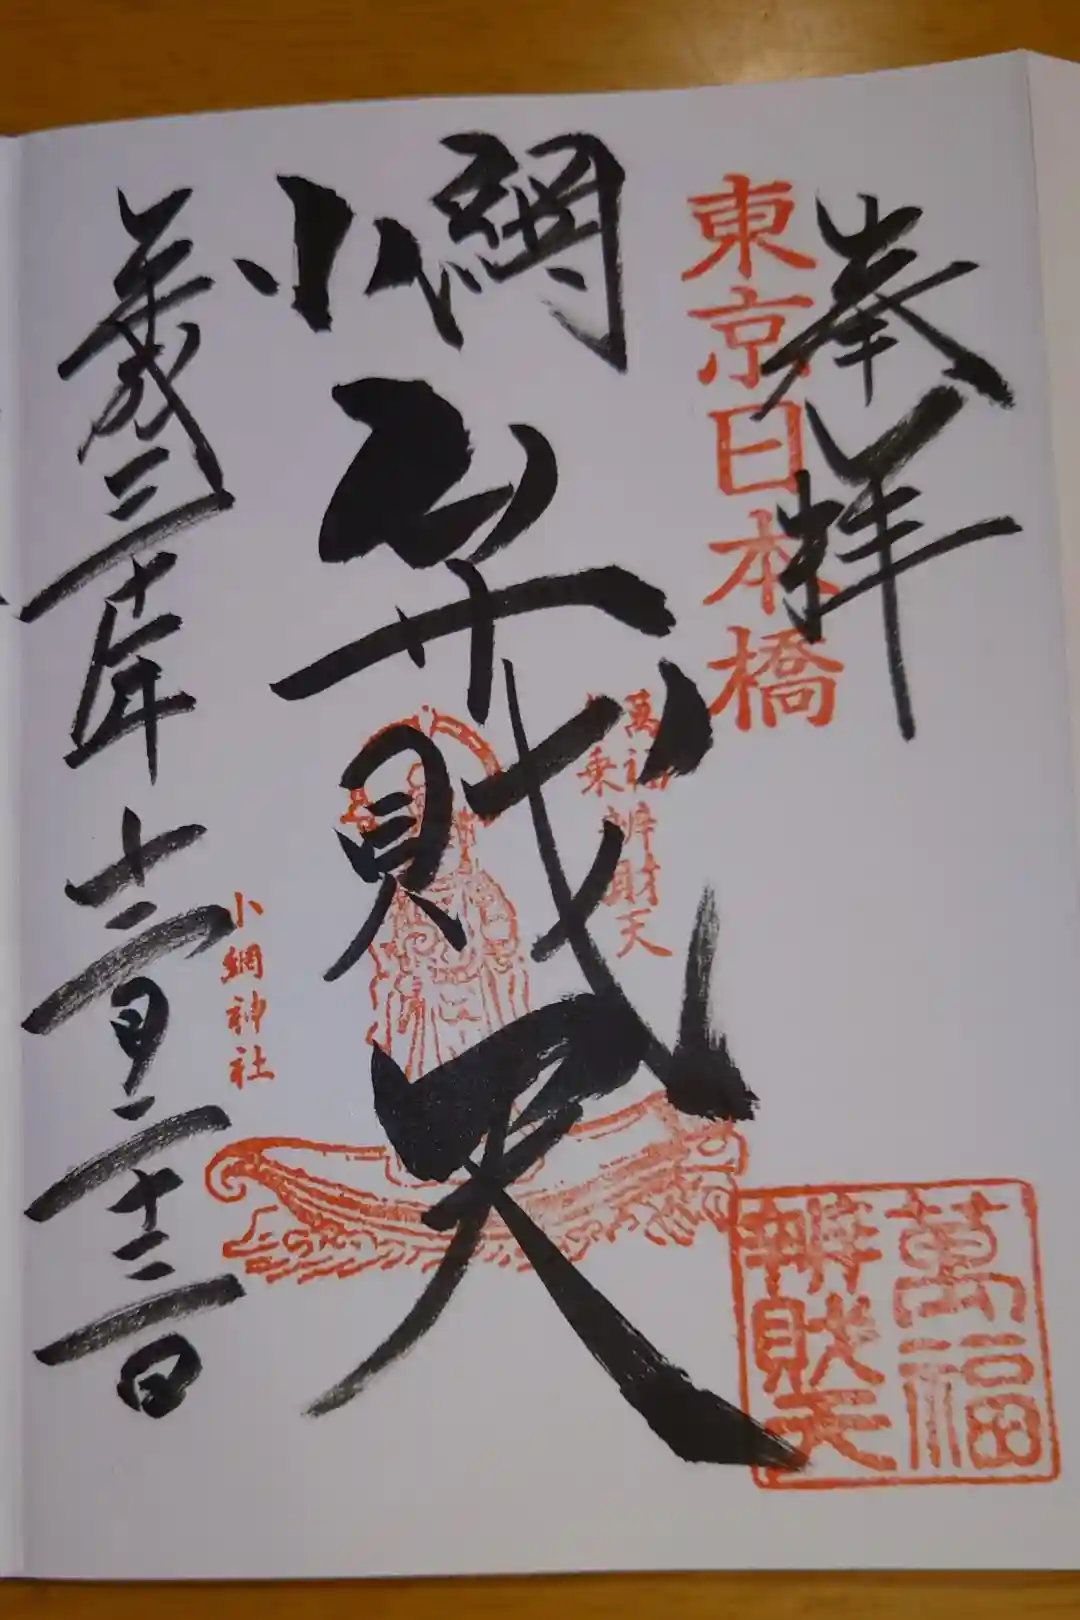 奉拝
東京日本橋
萬福舟乗辨財天
小網
弁財天
小網神社
平成三十年十二月二十三日
萬福
辨財天